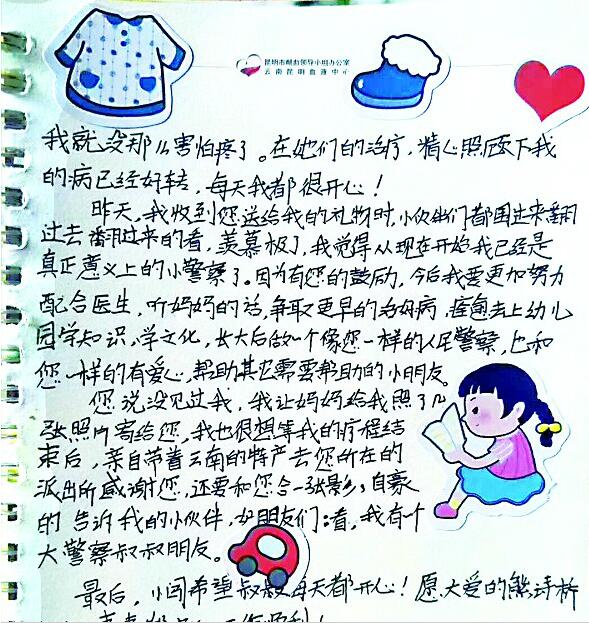 昆明市献血领导小组办公室
云南昆明血液中心
我就没那么害怕疼了。在她们的治疗,精心照顾下我
的病已经好转,每天我都很开心!
昨天,我收到您送给我的礼物时,小伙伴们都围过来翻
过去翻过来的看,羡慕极了,我觉得从现在开始我已经是
真正意义上的小警察了。因为有您的鼓励,今后我要更加努力
配合医生,听妈妈的话,争取更早的治好病,痊愈去上幼儿
园学知识、学文化,长大后做一个像您一样的人民警察,也和
您一样的有爱心,帮助其它需要帮助的小朋友。
您说没见过我,我让妈妈给我照了几
张照片寄给您,我也很想等我的疗程结
束后,亲自带着云南的特产去您所在的
派出所感谢您,还要和您合一张影,自豪
的告诉我的小伙伴,好朋友们:看,我有个
大警察叔叔朋友。
最后,小闰希望叔叔每天都开心!愿大爱的熊诗析